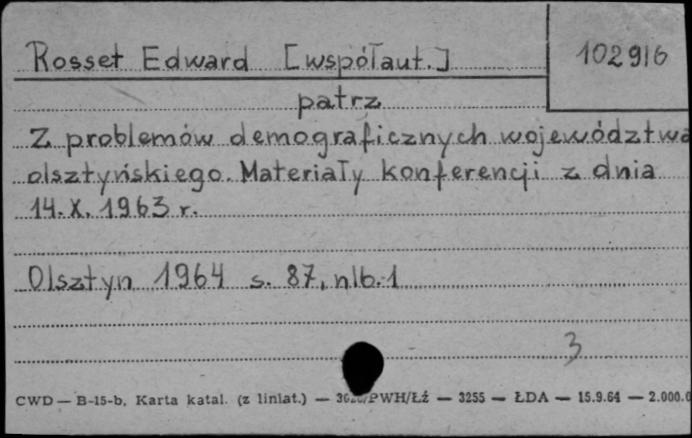 Rosset Edward [współaut.]
102916
patrz
Z problemów demograficznych województwa
olsztyńskiego. Materiały konferencji z dnia
14.X.1963 r.
Olsztyn 1964 s. 87, nlb. 1
3
CWD — B-15-b, Karta katal. (z liniat.) — PWH/Łź — 3255 — ŁDA — 15.9.64 — 2.000.0